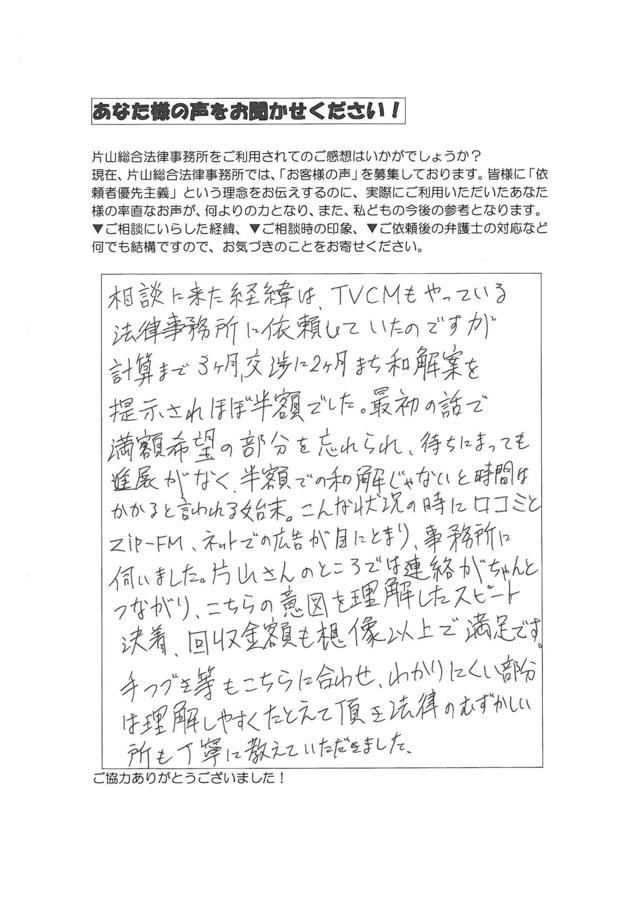 あなた様の声をお聞かせください！
片山総合法律事務所をご利用されてのご感想はいかがでしょうか？
現在、片山総合法律事務所では、「お客様の声」を募集しております。皆様に「依
頼者優先主義」という理念をお伝えするのに、実際にご利用いただいたあなた
様の率直なお声が、何よりの力となり、また、私どもの今後の参考となります。
▼ご相談にいらした経緯、▼ご相談時の印象、▼ご依頼後の弁護士の対応など
何でも結構ですので、お気づきのことをお寄せください。
相談に来た経緯は、TVCMもやっている
法律事務所に依頼していたのですが
計算まで3ヶ月、交渉に2ヶ月まち和解案を
提示されほぼ半額でした。最初の話で
満額希望の部分を忘れられ、待ちにまっても
進展がなく、半額での和解じゃないと時間は
かかると言われる始末。こんな状況の時に口コミと
ZIP-FM、ネットでの広告が目にとまり、事務所に
伺いました。片山さんのところでは連絡がちゃんと
つながり、こちらの意図を理解したスピート
決着、回収金額も想像以上で満足です。
手つづき等もこちらに合わせ、わかりにくい部分
は理解しやすくたとえて頂き法律のむずかしい
所も丁寧に教えていただきました。
ご協力ありがとうございました！